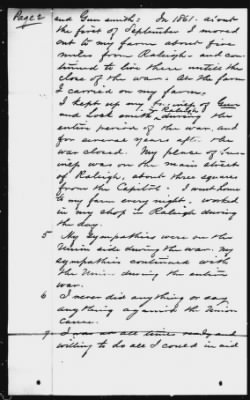 Page 2
and Gun smith: In 1861. about
the first of September I moved
out to my farm about five
miles from Raleigh and con
tinued to live there until the
close of the war. At the farm
I carried on my farm,
I kept up my of Gun
in Raleigh
and Lock smith during the
entire period of the war, and
for several years aft. the
war closed. My place of bus-
iness was on the main street
of Raleigh, about three squares
from the Capitol. I went home
to my farm every night. worked
in my shop in Raleigh during
the day.
5 My Sympathies were on the
Union side during the war, my
sympathies continued with
the Union during the entire
war.
6 I never did anything or say
anything against the Union
Cause.
7. I was at all times ready and
willing to do all I could in aid